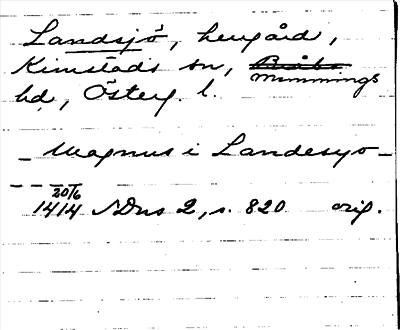 Landsjö, herrgård,
Kimstads sn, Bråbo
Memmings
hd, Österg. l.
_ Magnus i Landesyo _
_ _ _ 20/6
1414 SDns 2, s. 820 orig.